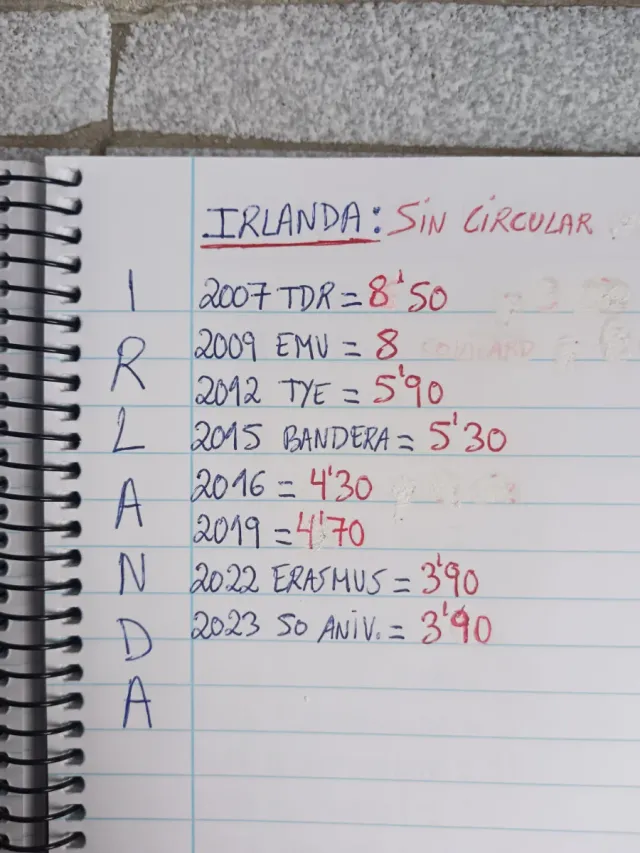 IRLANDA: SIN CIRCULAR
2007 TDR = 8'50
2009 EMU = 8
2012 TYE = 5'90
2015 BANDERA = 5'30
2016 = 4'30
2019 = 4'70
2022 ERASMUS = 3'90
2023 50 ANIV. = 3'90
I
R
L
A
N
D
A